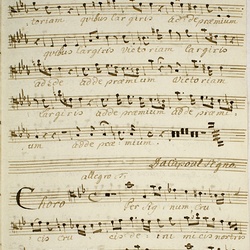 toriam quibus largiris adde præmium
quibus largiris Victoriam largiris
adde adde præmium Victoriam
largiris adde præmium adde præ
um adde præ mium.
Dal Segno.
allegro.
Choro Per signum cru
cis cru cis de ini micis nostris